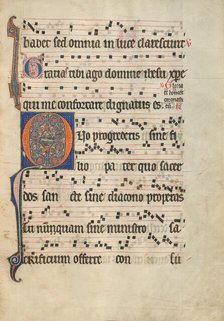 habet sed omnia in luce clarescunt
Gratias tibi ago domine ihesu xpe
qui me confortare dignatus es
Quo progrederis sine fi
lio pa ter quo sacer
dos sanc te sine diacono properas
tu nunquam sine ministro sa
crificium offerre con sue